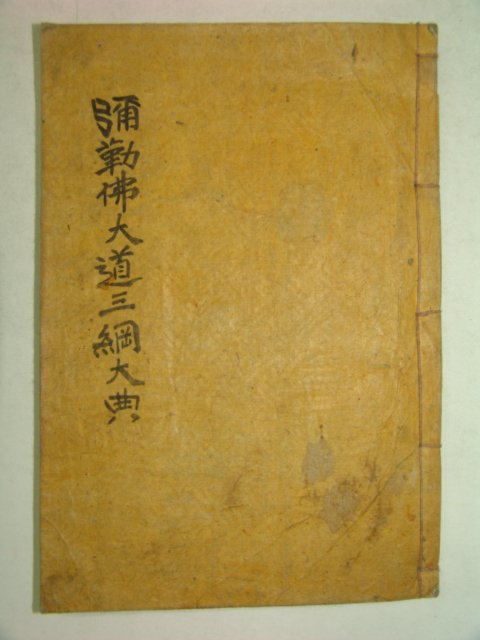 彌勒佛大道三綱大典